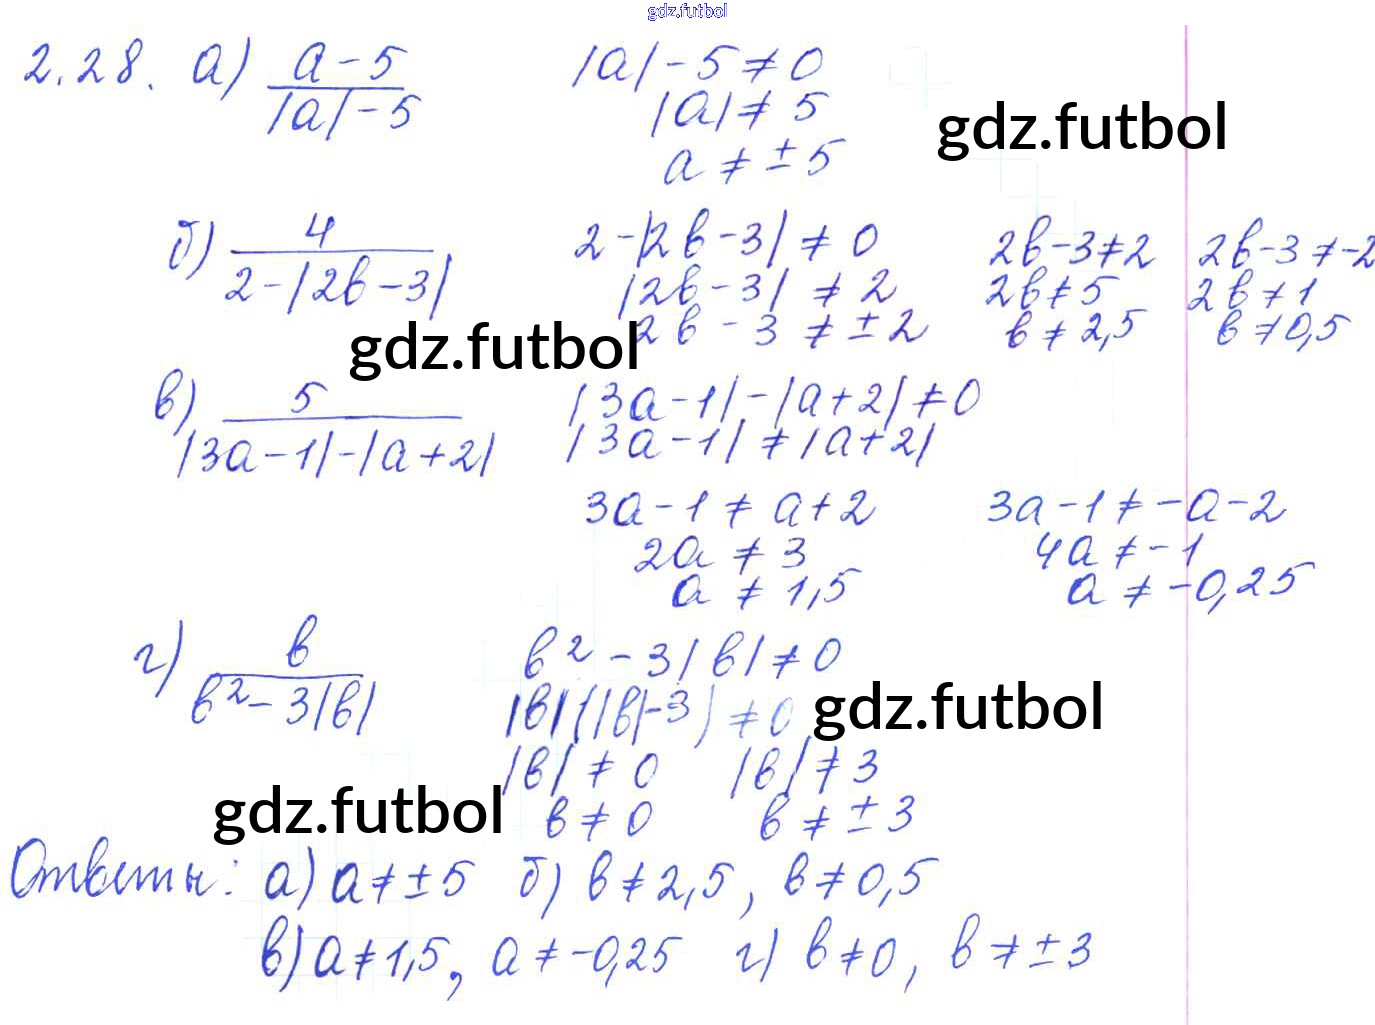 gdz.futbol
2.28. а) a-5 / |a|-5   |a|-5≠0
|a|≠5
gdz.futbol
a≠±5
б) 4 / 2-|2b-3|   2-|2b-3|≠0   2b-3≠2   2b-3≠-2
|2b-3|≠2   2b≠5   2b≠1
2b-3≠±2   b≠2,5   b≠0,5
gdz.futbol
в) 5 / |3a-1|-|a+2|   |3a-1|-|a+2|≠0
|3a-1|≠|a+2|
3a-1≠a+2   3a-1≠-a-2
2a≠3   4a≠-1
a≠1,5   a≠-0,25
г) b / b²-3|b|   b²-3|b|≠0
|b|(|b|-3)≠0
gdz.futbol
|b|≠0   |b|≠3
b≠0   b≠±3
gdz.futbol
Ответы: а) a≠±5   б) b≠2,5, b≠0,5
в) a≠1,5, a≠-0,25   г) b≠0, b≠±3